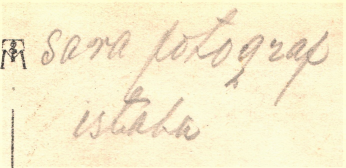 sara fotograf
istaha